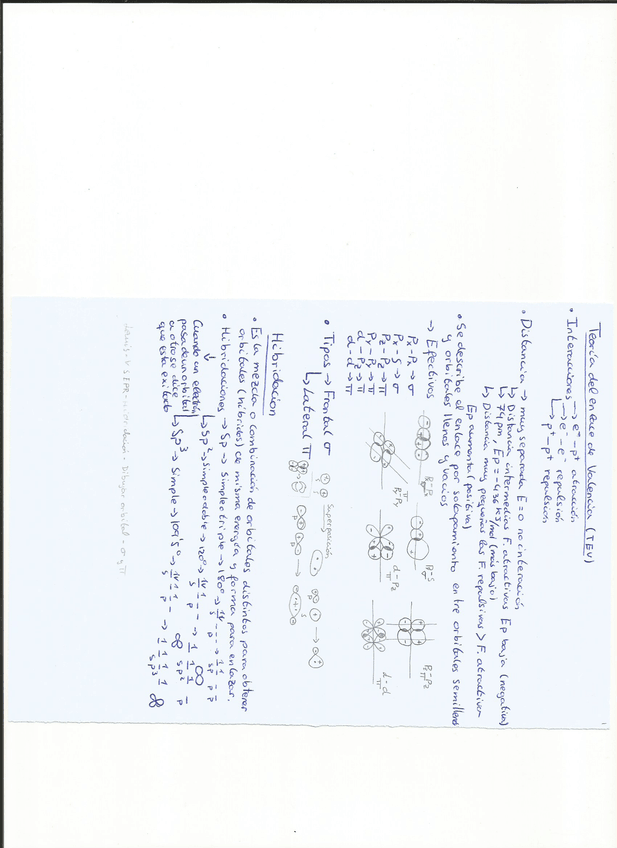 Teoría del enlace de Valencia (TEV)
• Interacciones → e⁻-p⁺ atracción
→ e⁻-e⁻ repulsión
→ p⁺-p⁺ repulsión
• Distancia → muy separada E=0 no interacción
↳ Distancia intermedias F. atractivas Ep baja (negativa)
↳ 74 pm, Ep = -436 kJ/mol (más bajo)
↳ Distancia muy pequeñas las F. repulsivas > F. atractivas
Ep aumenta (positiva)
• Se describe el enlace por solapamiento entre orbitales semillenos
y orbitales llenos y vacíos
→ Efectivos
Px-Px → σ
Px-S → σ
Pz-Pz → π
Py-Py → π
d-Pz → π
d-d → π
Px-Px
σ
Px-S
σ
Pz-Pz
π
Py-Py
π
d-Pz
d-d
π
• Tipos → Frontal σ
↳ Lateral π
Superposición
Hibridación
• Es la mezcla o combinación de orbitales distintos para obtener
orbitales (híbridos) de misma energía y forma para enlazar.
• Hibridaciones → Sp → Simple o triple → 180° → 1↓ - - - → 1 1 - -
S P Sp P P
↳ Sp² → simple o doble → 120° → 1↓ 1 - - → 1 1 1 -
S P Sp² P
↳ Sp³ → Simple → 109'5° → 1↓ 1 - - → 1 1 1 1
S P Sp³
Cuando un electrón
pasa de un orbital
a otro se dice
que esta exitado